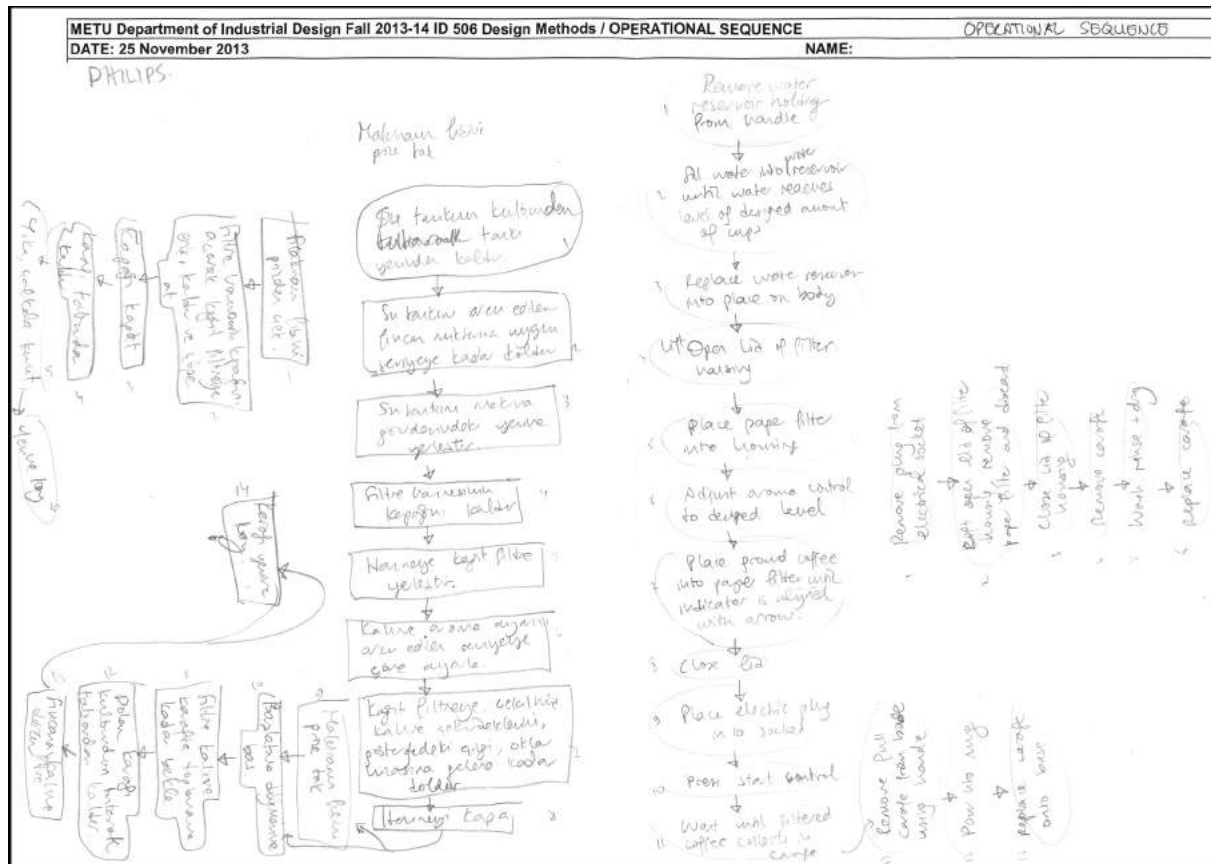 METU Department of Industrial Design Fall 2013-14 ID 506 Design Methods / OPERATIONAL SEQUENCE
OPERATIONAL SEQUENCE
DATE: 25 November 2013
NAME:
PHILIPS.
pize tak
Su tankını kulbundan
tutarak tankı
yerinden kaldır.
1
Su tankını arzu edilen
fincan miktarına uygun
seviyeye kadar doldur
2
Su tankını makina
gövdesindeki yerine
yerleştir.
3
Filtre haznesinin
kapağını kaldır
4
Hazneye kağıt filtre
yerleştir.
5
Kahve aroma ayarını
arzu edilen seviyeye
göre ayarla.
6
Kağıt filtreye, çekilmiş
kahve
kadar
doldur
Hazneyi kapa
8
pize tak
Başlatma düğmesine
bas
10
Filtre kahve
karafta toplanana
kadar bekle
11
Dolan karafı
kulbundan tutarak
tabandan kaldır
12
14
fişini
prizden çek
1
Filtre haznesinin kapağını
açarak kağıt filtreye
kaldır ve çöpe
at
2
Kapağı kapat
3
Karafı tabandan
kaldır
4
Yıka, çalkala kurut,
5
1
Remove water
reservoir holding
from handle
2
Fill water into water reservoir
until water reaches
level of desired amount
of cups
3
Replace water reservoir
into place on body
4
Lift Open lid of filter
housing
5
Place paper filter
into housing
6
Adjust aroma control
to desired level
7
Place ground coffee
into paper filter until
indicator is aligned
with arrow.
8
Close lid
9
Place electric plug
into socket
10
Press start control
11
Wait until filtered
coffee collects in
carafe
Remove full
carafe from base
using handle
Pour into mug
Replace carafe
onto base
1
Remove plug from
electrical socket
2
open lid of filter
housing, remove
paper filter and discard
3
Close lid of filter
housing
4
Remove carafe
5
Wash, rinse + dry
6
Replace carafe